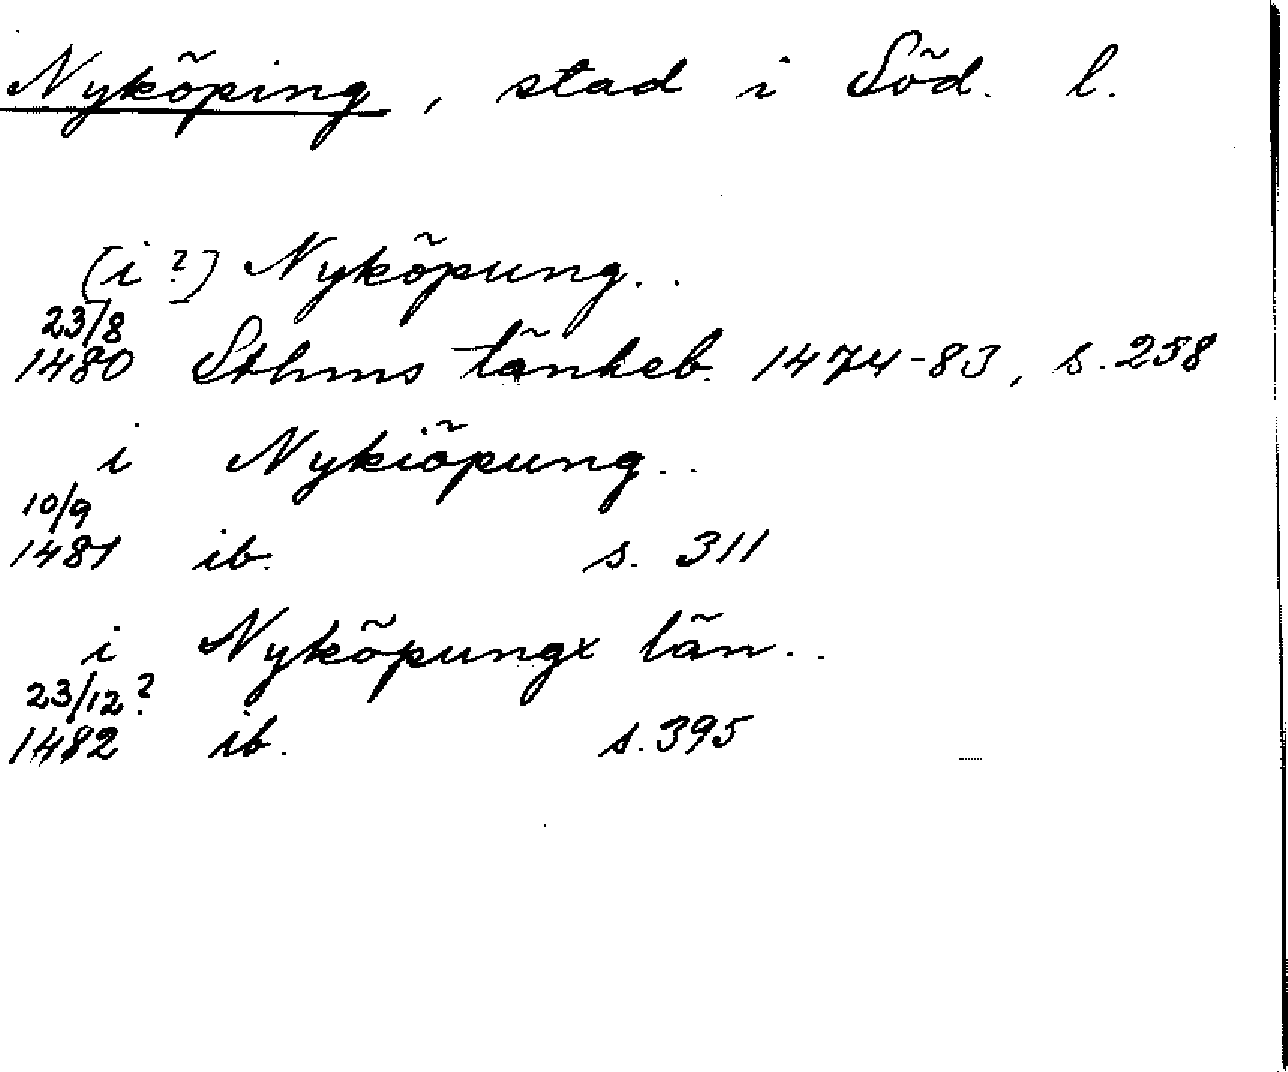 Nyköping, stad i Söd. l.
(i?) Nyköpung..
23/8
1480 Sthms tänkeb. 1474-83, s. 258
i Nykiöpung..
10/9
1481 ib. s. 311
i Nyköpungx län..
23/12?
1482 ib. s. 395